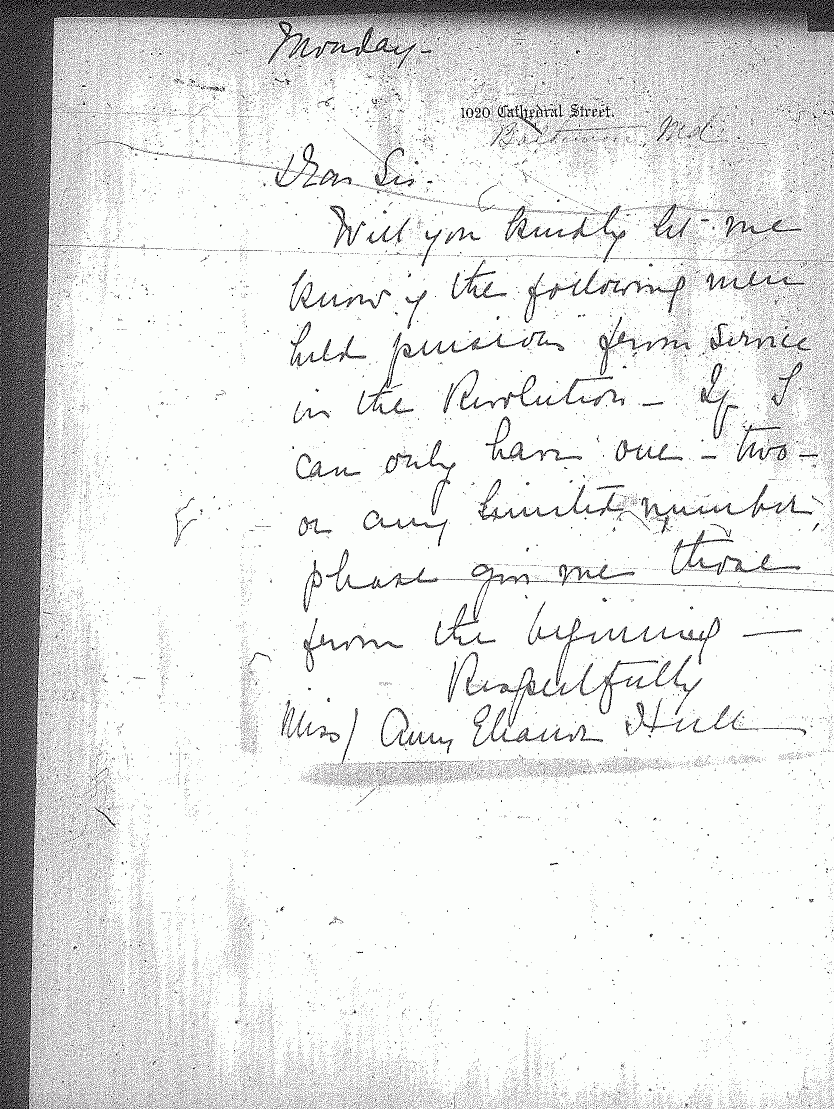 Monday -
1020 Cathedral Street.
Baltimore, Md.
Dear Sir.
Will you kindly let me
know if the following men
held pensions from service
in the Revolution - If I
can only have one - two -
or any limited number,
please give me those
from the beginning -
Respectfully
Miss/ Amy Eleanor Hull